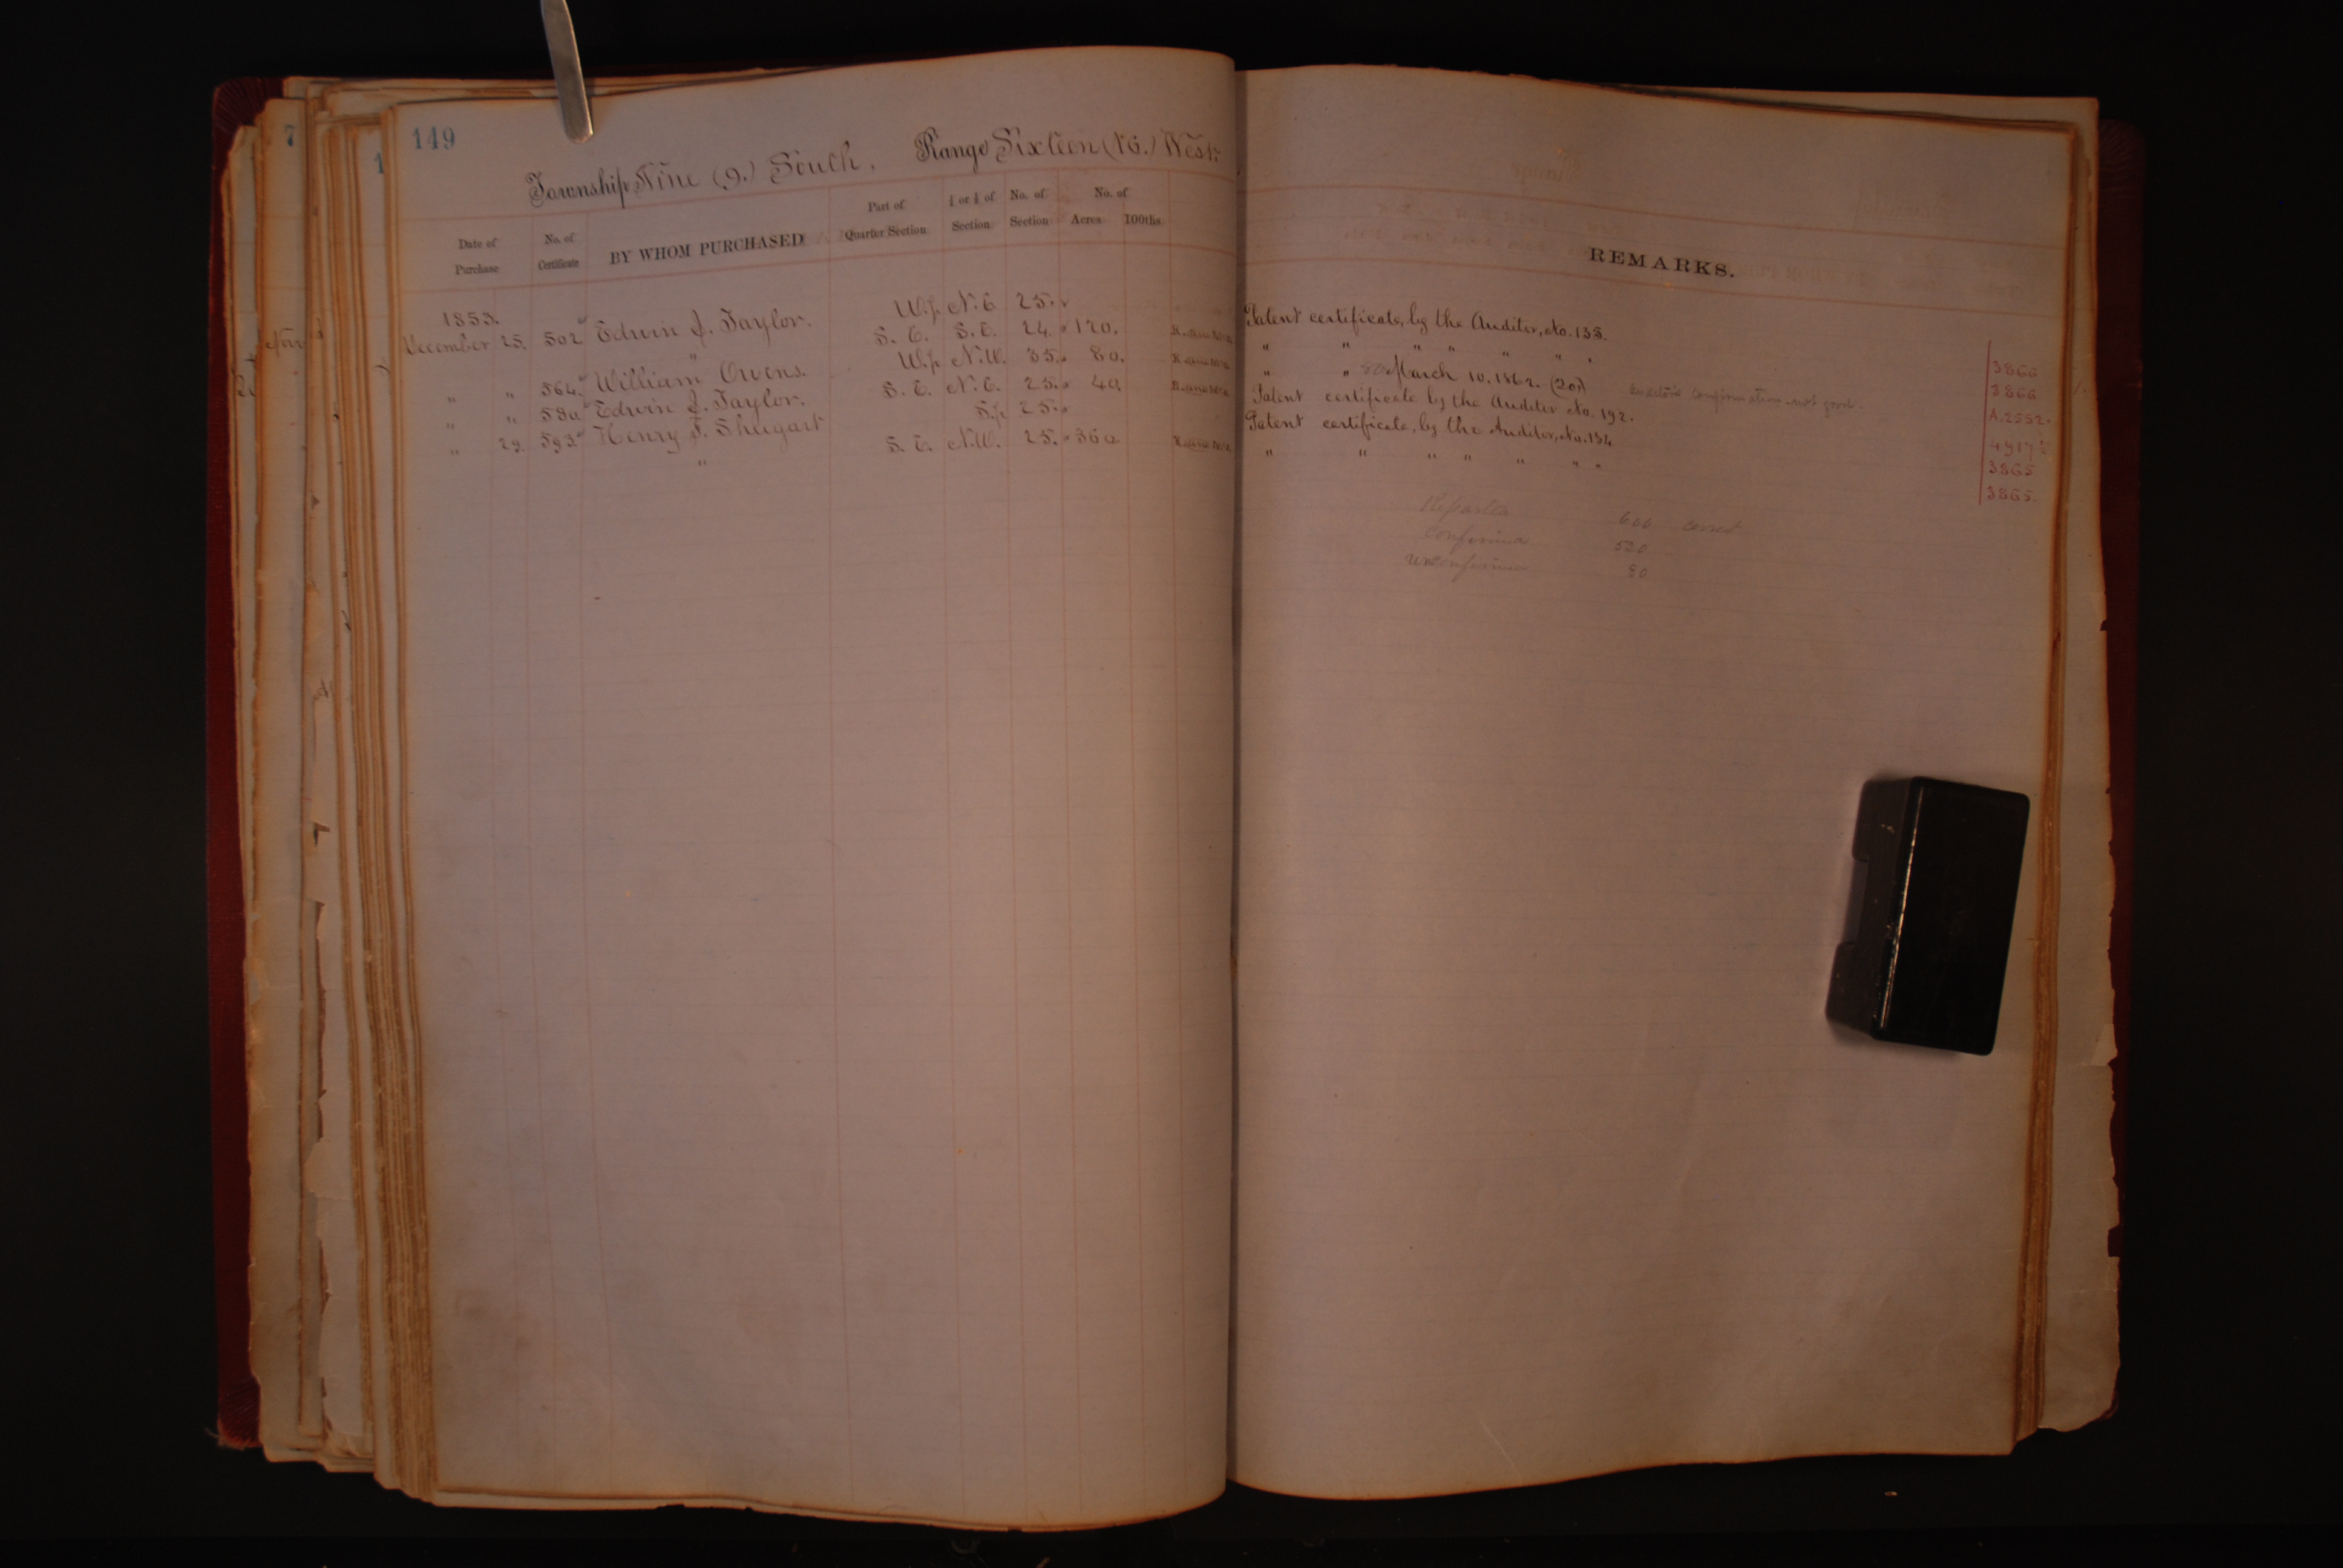 149
Township Nine (9.) South. Range Sixteen (16.) West.
Date of Purchase No. of Certificate BY WHOM PURCHASED Part of Quarter Section ½ or ¼ of Section No. of Section No. of Acres 100ths. REMARKS.
1853. W.½ N.E 25. Patent certificate, by the Auditor, No. 133.
December 25. 502 Edwin J. Taylor. S. E. S.E. 24. 120. " " " " " " " 3866
" " 564. William Owens. W.½ N.W. 35. 80. " " March 10. 1862. (20) confirmation not good. 3866
" " 580 Edwin J. Taylor. S. E. N.E. 25. 40. Patent certificate by the Auditor No. 192. A.2552.
" 29. 593. Henry F. Shugart S.½ 25. Patent certificate, by the Auditor, No. 134 4917
" S. E. N.W. 25. 360 " " " " " " " 3865
3865.
Reported 600
Confirmed 520
Unconfirmed 80